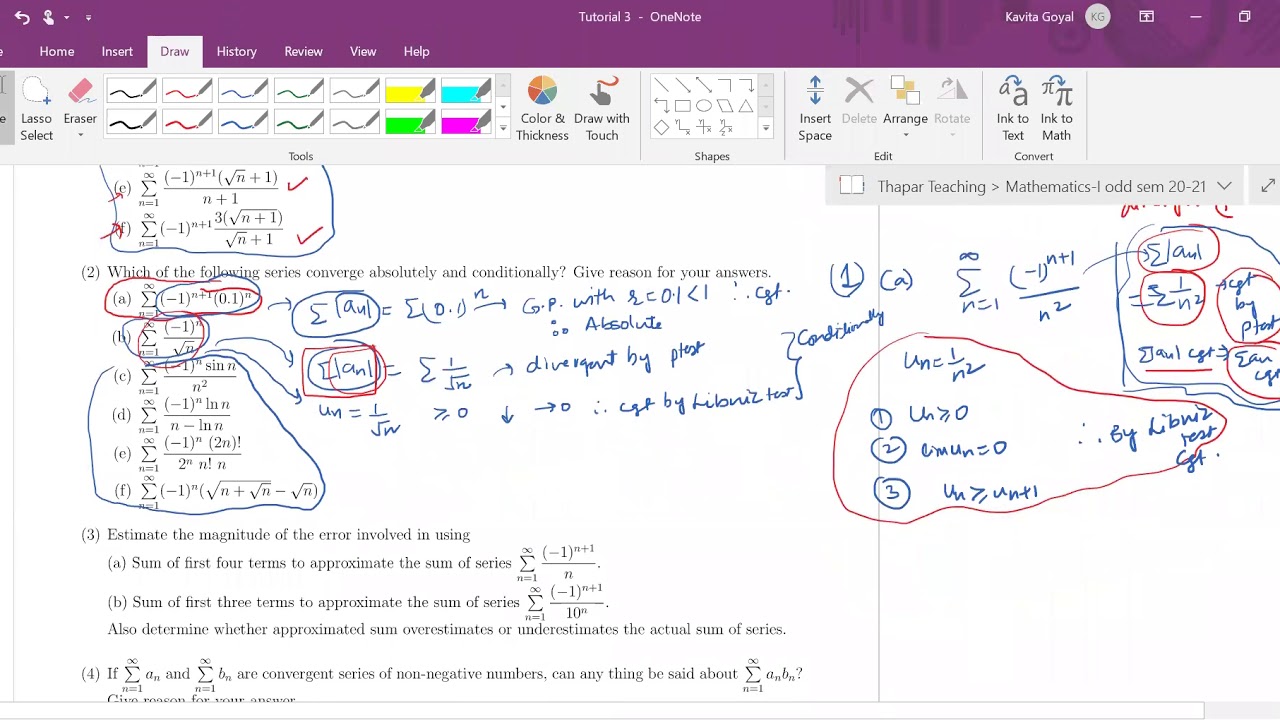 Tutorial 3 - OneNote
Kavita Goyal
KG
Home Insert Draw History Review View Help
Lasso Select
Eraser
Color & Thickness
Draw with Touch
Insert Space
Delete
Arrange
Rotate
Ink to Text
Ink to Math
Tools
Shapes
Edit
Convert
Thapar Teaching > Mathematics-I odd sem 20-21
(e) ∑_{n=1}^{∞} (-1)^{n+1}(√n + 1) / (n + 1) ✓
(f) ∑_{n=1}^{∞} (-1)^{n+1} 3(√(n + 1)) / (√n + 1) ✓
(2) Which of the following series converge absolutely and conditionally? Give reason for your answers.
(a) ∑_{n=1}^{∞} (-1)^{n+1}(0.1)^n → ∑|an| = ∑(0.1)^n → G.P. with r=0.1<1 ∴ cgt.
∴ Absolute
(b) ∑_{n=1}^{∞} (-1)^n / √n
∑|an| = ∑ 1/√n → divergent by ptest
un = 1/√n ≥0 ↓ →0 ∴ cgt by Libnriz test
} Conditionally
(c) ∑_{n=1}^{∞} (-1)^n sin n / n^2
(d) ∑_{n=1}^{∞} (-1)^n ln n / (n − ln n)
(e) ∑_{n=1}^{∞} (-1)^n (2n)! / (2^n n! n)
(f) ∑_{n=1}^{∞} (-1)^n(√(n + √n) − √n)
(3) Estimate the magnitude of the error involved in using
(a) Sum of first four terms to approximate the sum of series ∑_{n=1}^{∞} (-1)^{n+1} / n.
(b) Sum of first three terms to approximate the sum of series ∑_{n=1}^{∞} (-1)^{n+1} / 10^n.
Also determine whether approximated sum overestimates or underestimates the actual sum of series.
(4) If ∑_{n=1}^{∞} a_n and ∑_{n=1}^{∞} b_n are convergent series of non-negative numbers, can any thing be said about ∑_{n=1}^{∞} a_n b_n?
Give reason for your answer
(1) (a) ∑_{n=1}^{∞} (-1)^{n+1} / n^2
∑|an|
= ∑ 1/n^2 → cgt by Ptest
∑|an| cgt → ∑an cgt
un = 1/n^2
① un ≥ 0
② lim un = 0
③ un ≥ un+1
∴ By Libniz test cgt.